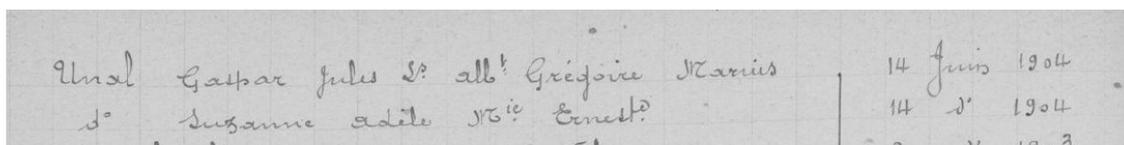 Unal Gaspar Jules Ls. albt. Grégoire Marius 14 Juin 1904
do Suzanne Adèle Mie. Ernestd. 14 do 1904